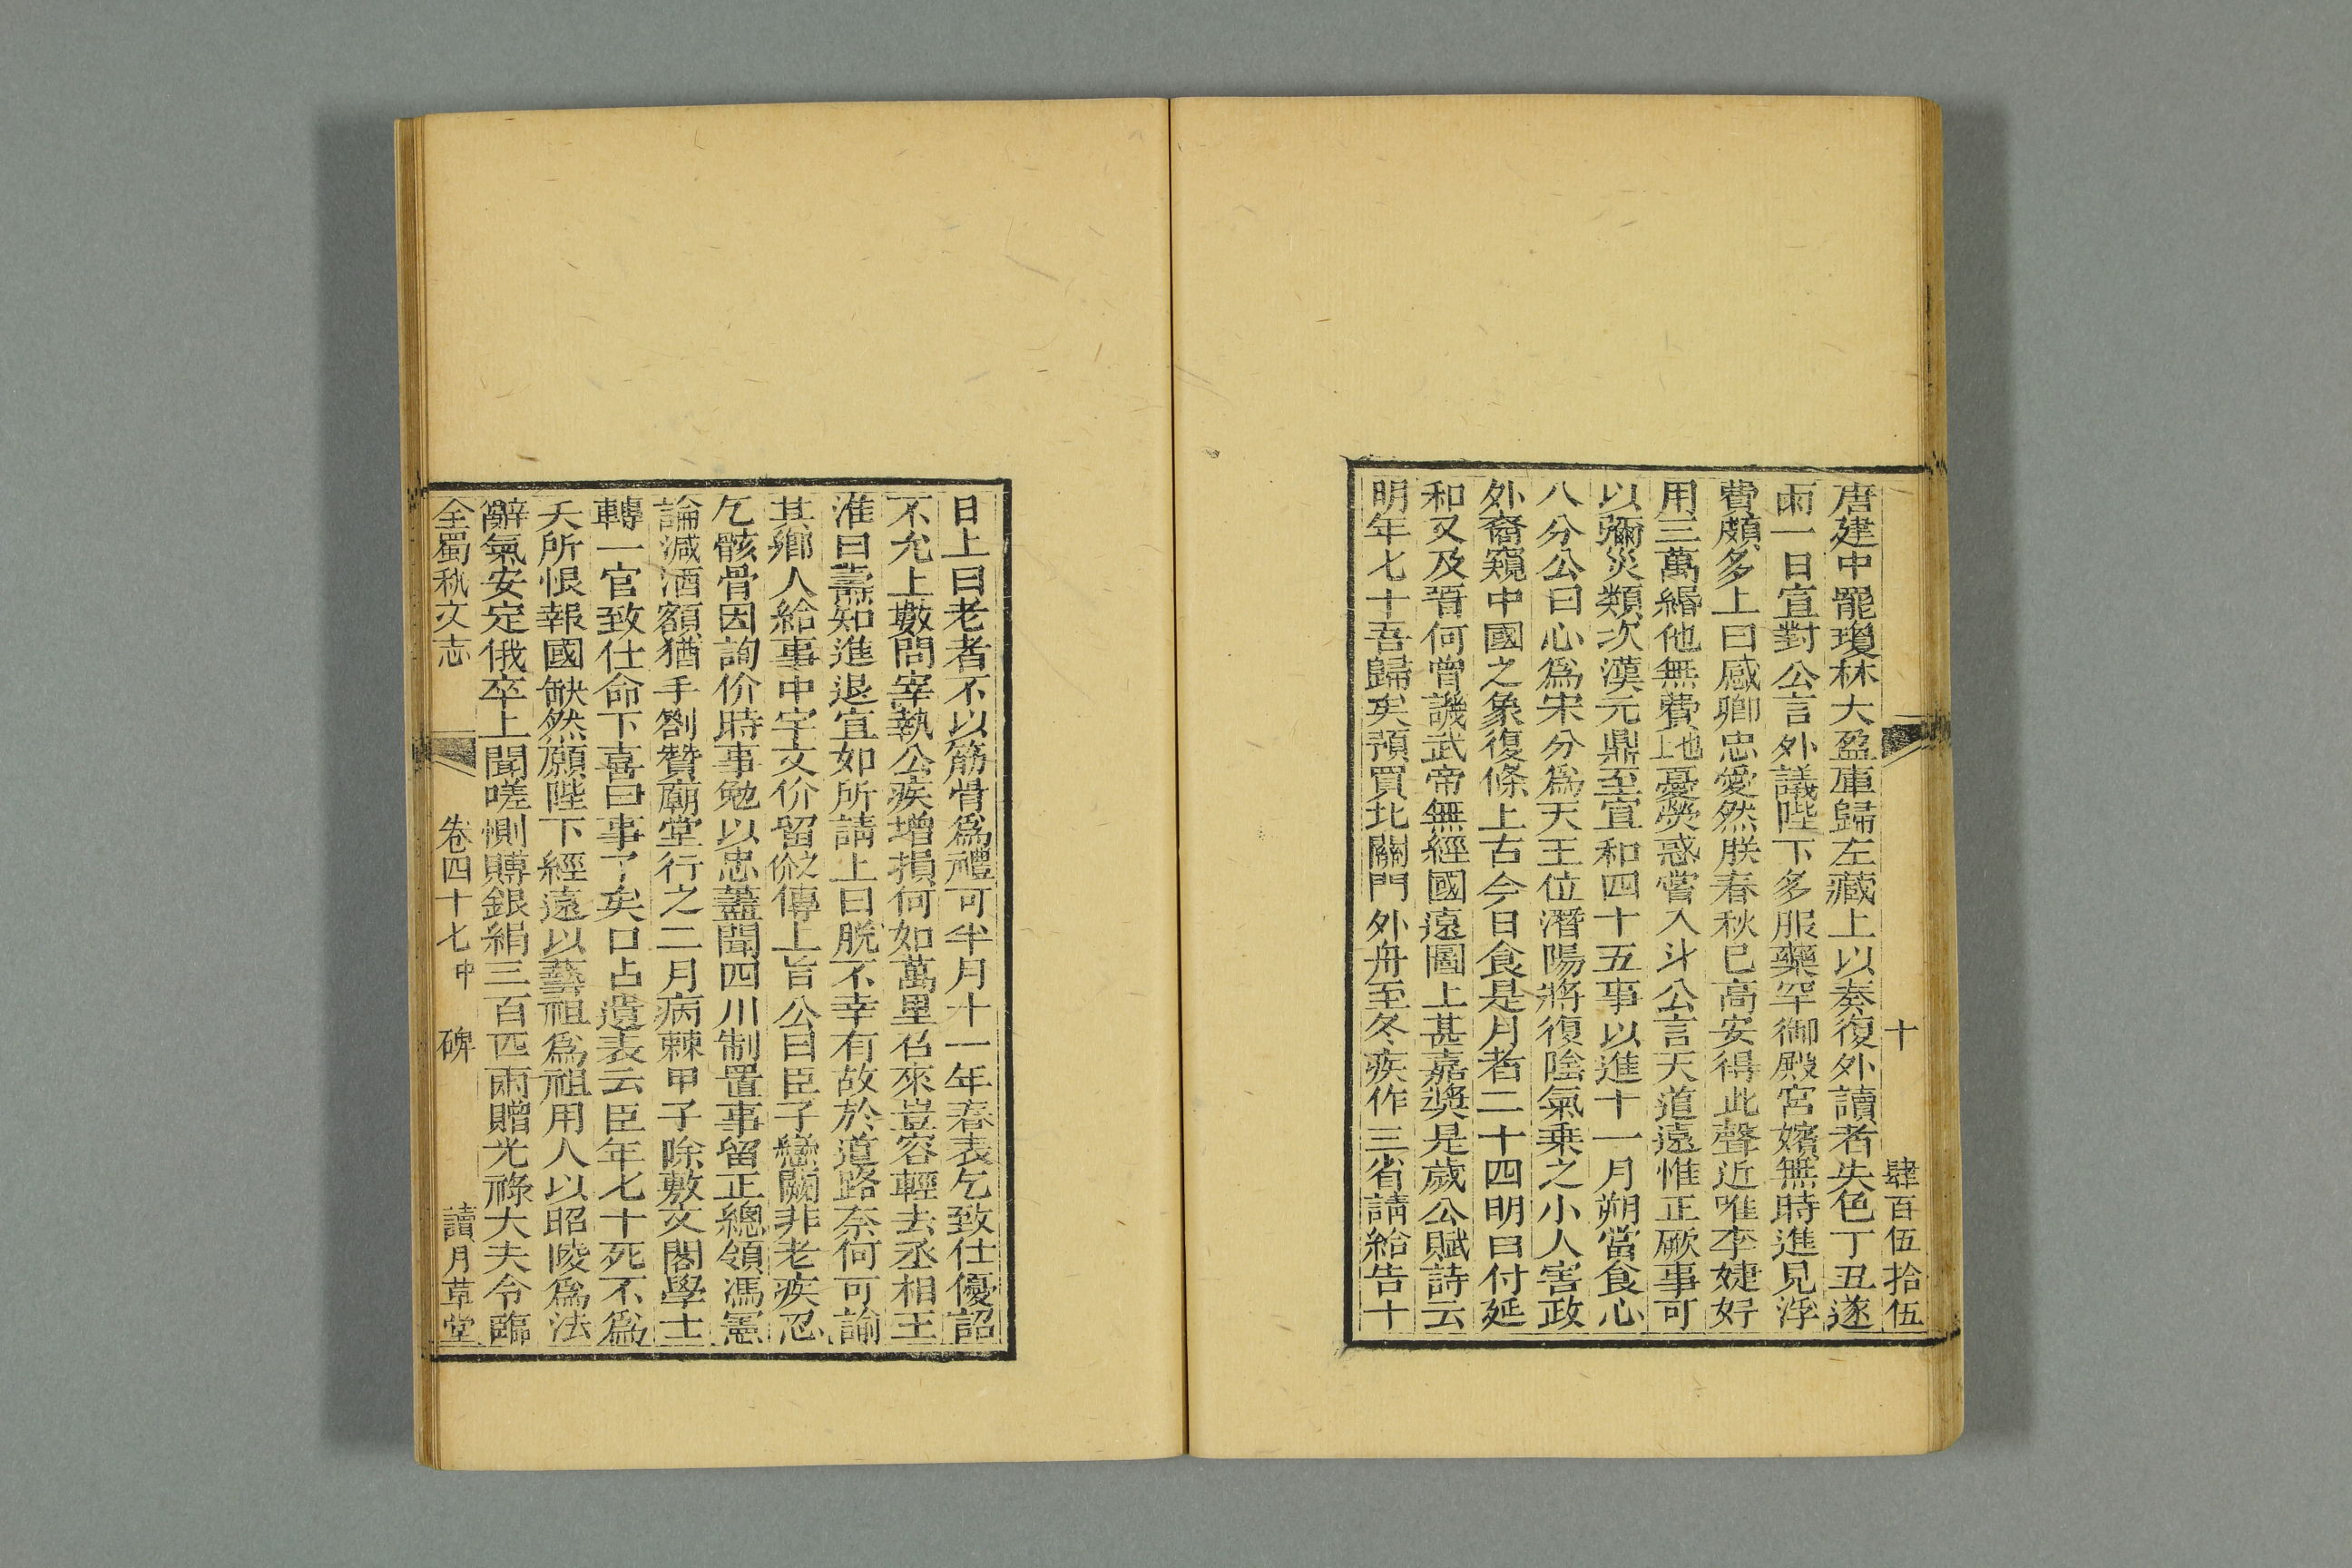 十　肆百伍拾伍
唐建中罷瓊林大盈庫歸左藏上以奏復外讀者失色丁丑遂
雨一日宣對公言外議陛下多服藥罕御殿宮嬪無時進見浮
費頗多上曰感卿忠愛然朕春秋已高安得此聲近唯李婕妤
用三萬緡他無費也上憂熒惑嘗入斗公言天道遠惟正厥事可
以彌災類次漢元鼎至宣和四十五事以進十一月朔當食心
八分公曰心爲宋分爲天王位潛陽將復陰氣乗之小人害政
外裔窺中國之象復條上古今日食是月者二十四明日付延
和又及晋何曾譏武帝無經國遠圖上甚嘉奬是歲公賦詩云
明年七十吾歸矣預買北關門外舟至冬疾作三省請給告十
日上曰老者不以筋骨爲禮可半月十一年春表乞致仕優詔
不允上數問宰執公疾增損何如萬里召來豈容輕去丞相王
淮曰燾知進退宜如所請上曰脱不幸有故於道路奈何可諭
其鄉人給事中宇文价留之价傳上旨公曰臣子戀闕非老疾忍
乞骸骨因詢价時事勉以忠藎聞四川制置事留正總領馮憲
論減酒額猶手劄贊廟堂行之二月病棘甲子除敷文閣學士
轉一官致仕命下喜曰事了矣口占遺表云臣年七十死不爲
夭所恨報國缺然願陛下經遠以藝祖爲祖用人以昭陵爲法
辭氣安定俄卒上聞嗟惻賻銀絹三百匹兩贈光祿大夫令臨
全蜀秇文志　卷四十七中　碑　讀月草堂